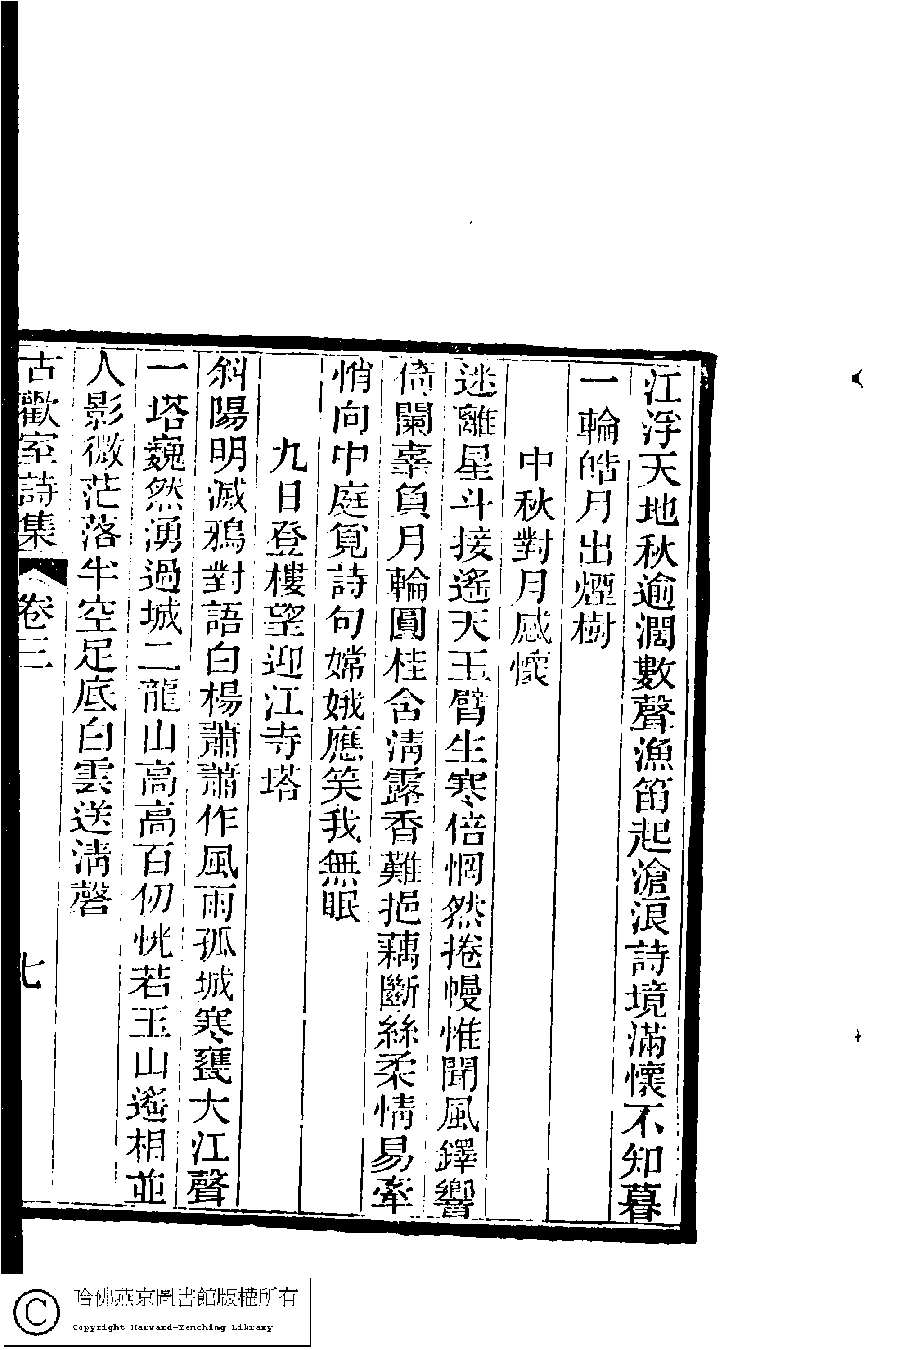 江浮天地秋逾濶數聲漁笛起滄浪詩境滿懷不知暮
一輪皓月出煙樹
中秋對月感懷
迷離星斗接遙天玉臂生寒倍惘然捲幔惟聞風鐸響
倚闌辜負月輪圓桂含淸露香難挹藕斷絲柔情易牽
悄向中庭覓詩句嫦娥應笑我無眠
九日登樓望迎江寺塔
斜陽明滅鴉對語白楊蕭蕭作風雨孤城寒甕大江聲
一塔巍然湧過城二龍山高高百仞恍若玉山遙相並
人影微茫落半空足底白雲送淸磬
古歡室詩集
卷三
七
哈佛燕京圖書館版權所有
Copyright Harvard-Yenching Library